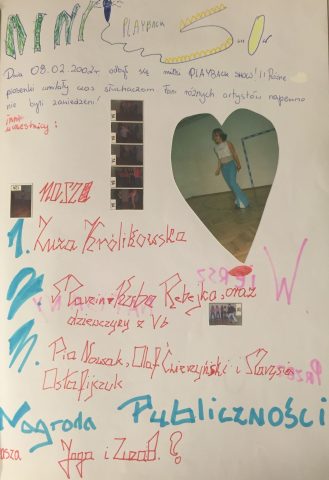 MINI PLAYBACK SHOW
Dnia 08.02.2002r odbył się mini PLAYBACK SHOW!!! Różne
piosenki umilały czas słuchaczom. Fani różnych artystów napewno
nie byli zawiedzeni!
uczestnicy:
NOSZE
1. Zuza Królikowska
2. Rebejka, oraz
dziewczyny z Vb
Pia Nowak, Olaf Ćwierzyński i
Ostafijczuk
Nagroda Publiczności
Joga i Zuza B. ?